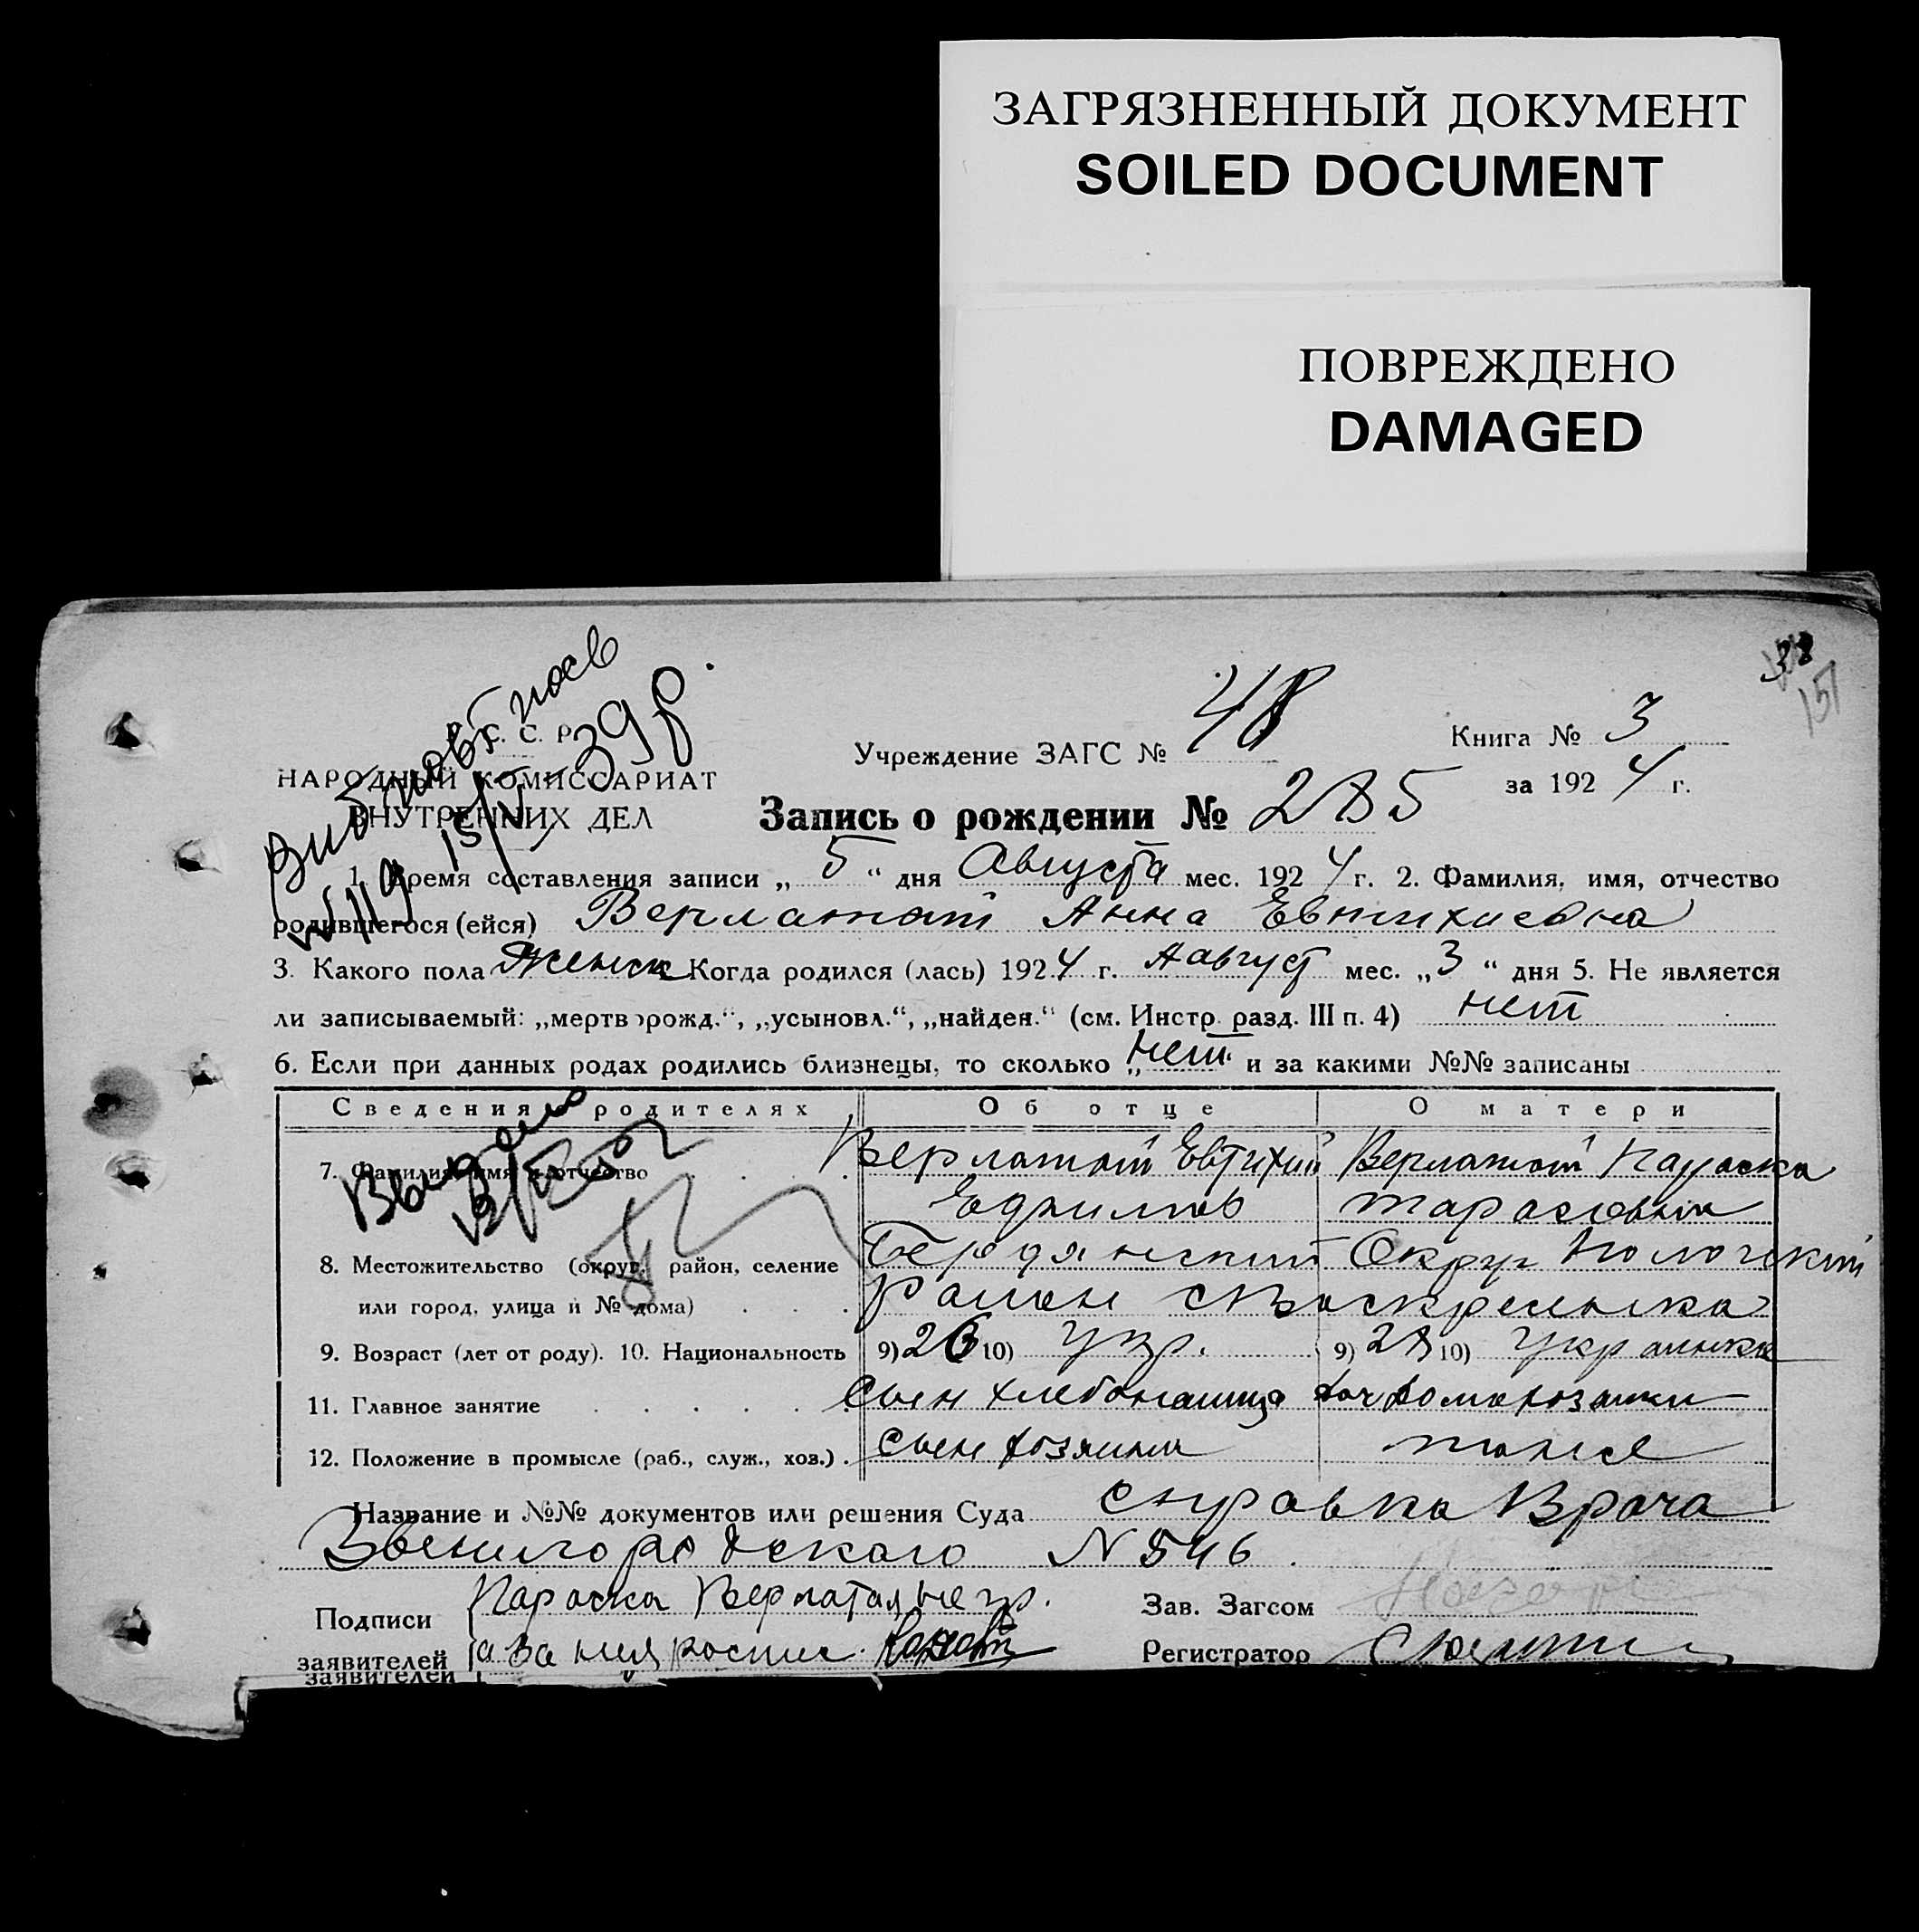 ЗАГРЯЗНЕННЫЙ ДОКУМЕНТ
SOILED DOCUMENT
ПОВРЕЖДЕНО
DAMAGED
38
151
С. С. Р.
НАРОДНЫЙ КОМИССАРИАТ
ВНУТРЕННИХ ДЕЛ
39 р.
Учреждение ЗАГС № 48
Книга № 3
за 1924 г.
Запись о рождении № 285
1. Время составления записи „5“ дня Августа мес. 1924 г. 2. Фамилия, имя, отчество
родившегося (ейся) Верлатат Анна Евтихиевна
3. Какого пола Женск Когда родился (лась) 1924 г. Август мес. „3“ дня 5. Не является
ли записываемый: „мертворожд.“, „усыновл.“, „найден.“ (см. Инстр. разд. III п. 4) нет
6. Если при данных родах родились близнецы, то сколько „нет и за какими №№ записаны
Сведения о родителях Об отце О матери
7. Фамилия, имя и отчество Верлатат Евтихий Верлатат Параска
Ефимов Тарасовна
8. Местожительство (округ, район, селение Бердянский Округ Пологский
или город, улица и № дома) район с Воскресенка
9. Возраст (лет от роду). 10. Национальность 9) 26 10) Укр. 9) 28 10) Украинка
11. Главное занятие Сын хлебопашца доч домохозяики
12. Положение в промысле (раб., служ., хоз.) Сын хозяина тоже
Название и №№ документов или решения Суда справка Врача
Звенигородскаго N 546.
Подписи Параска Верлатая негр.
Зав. Загсом
заявителей а за нея роспис.
Регистратор
заявителей